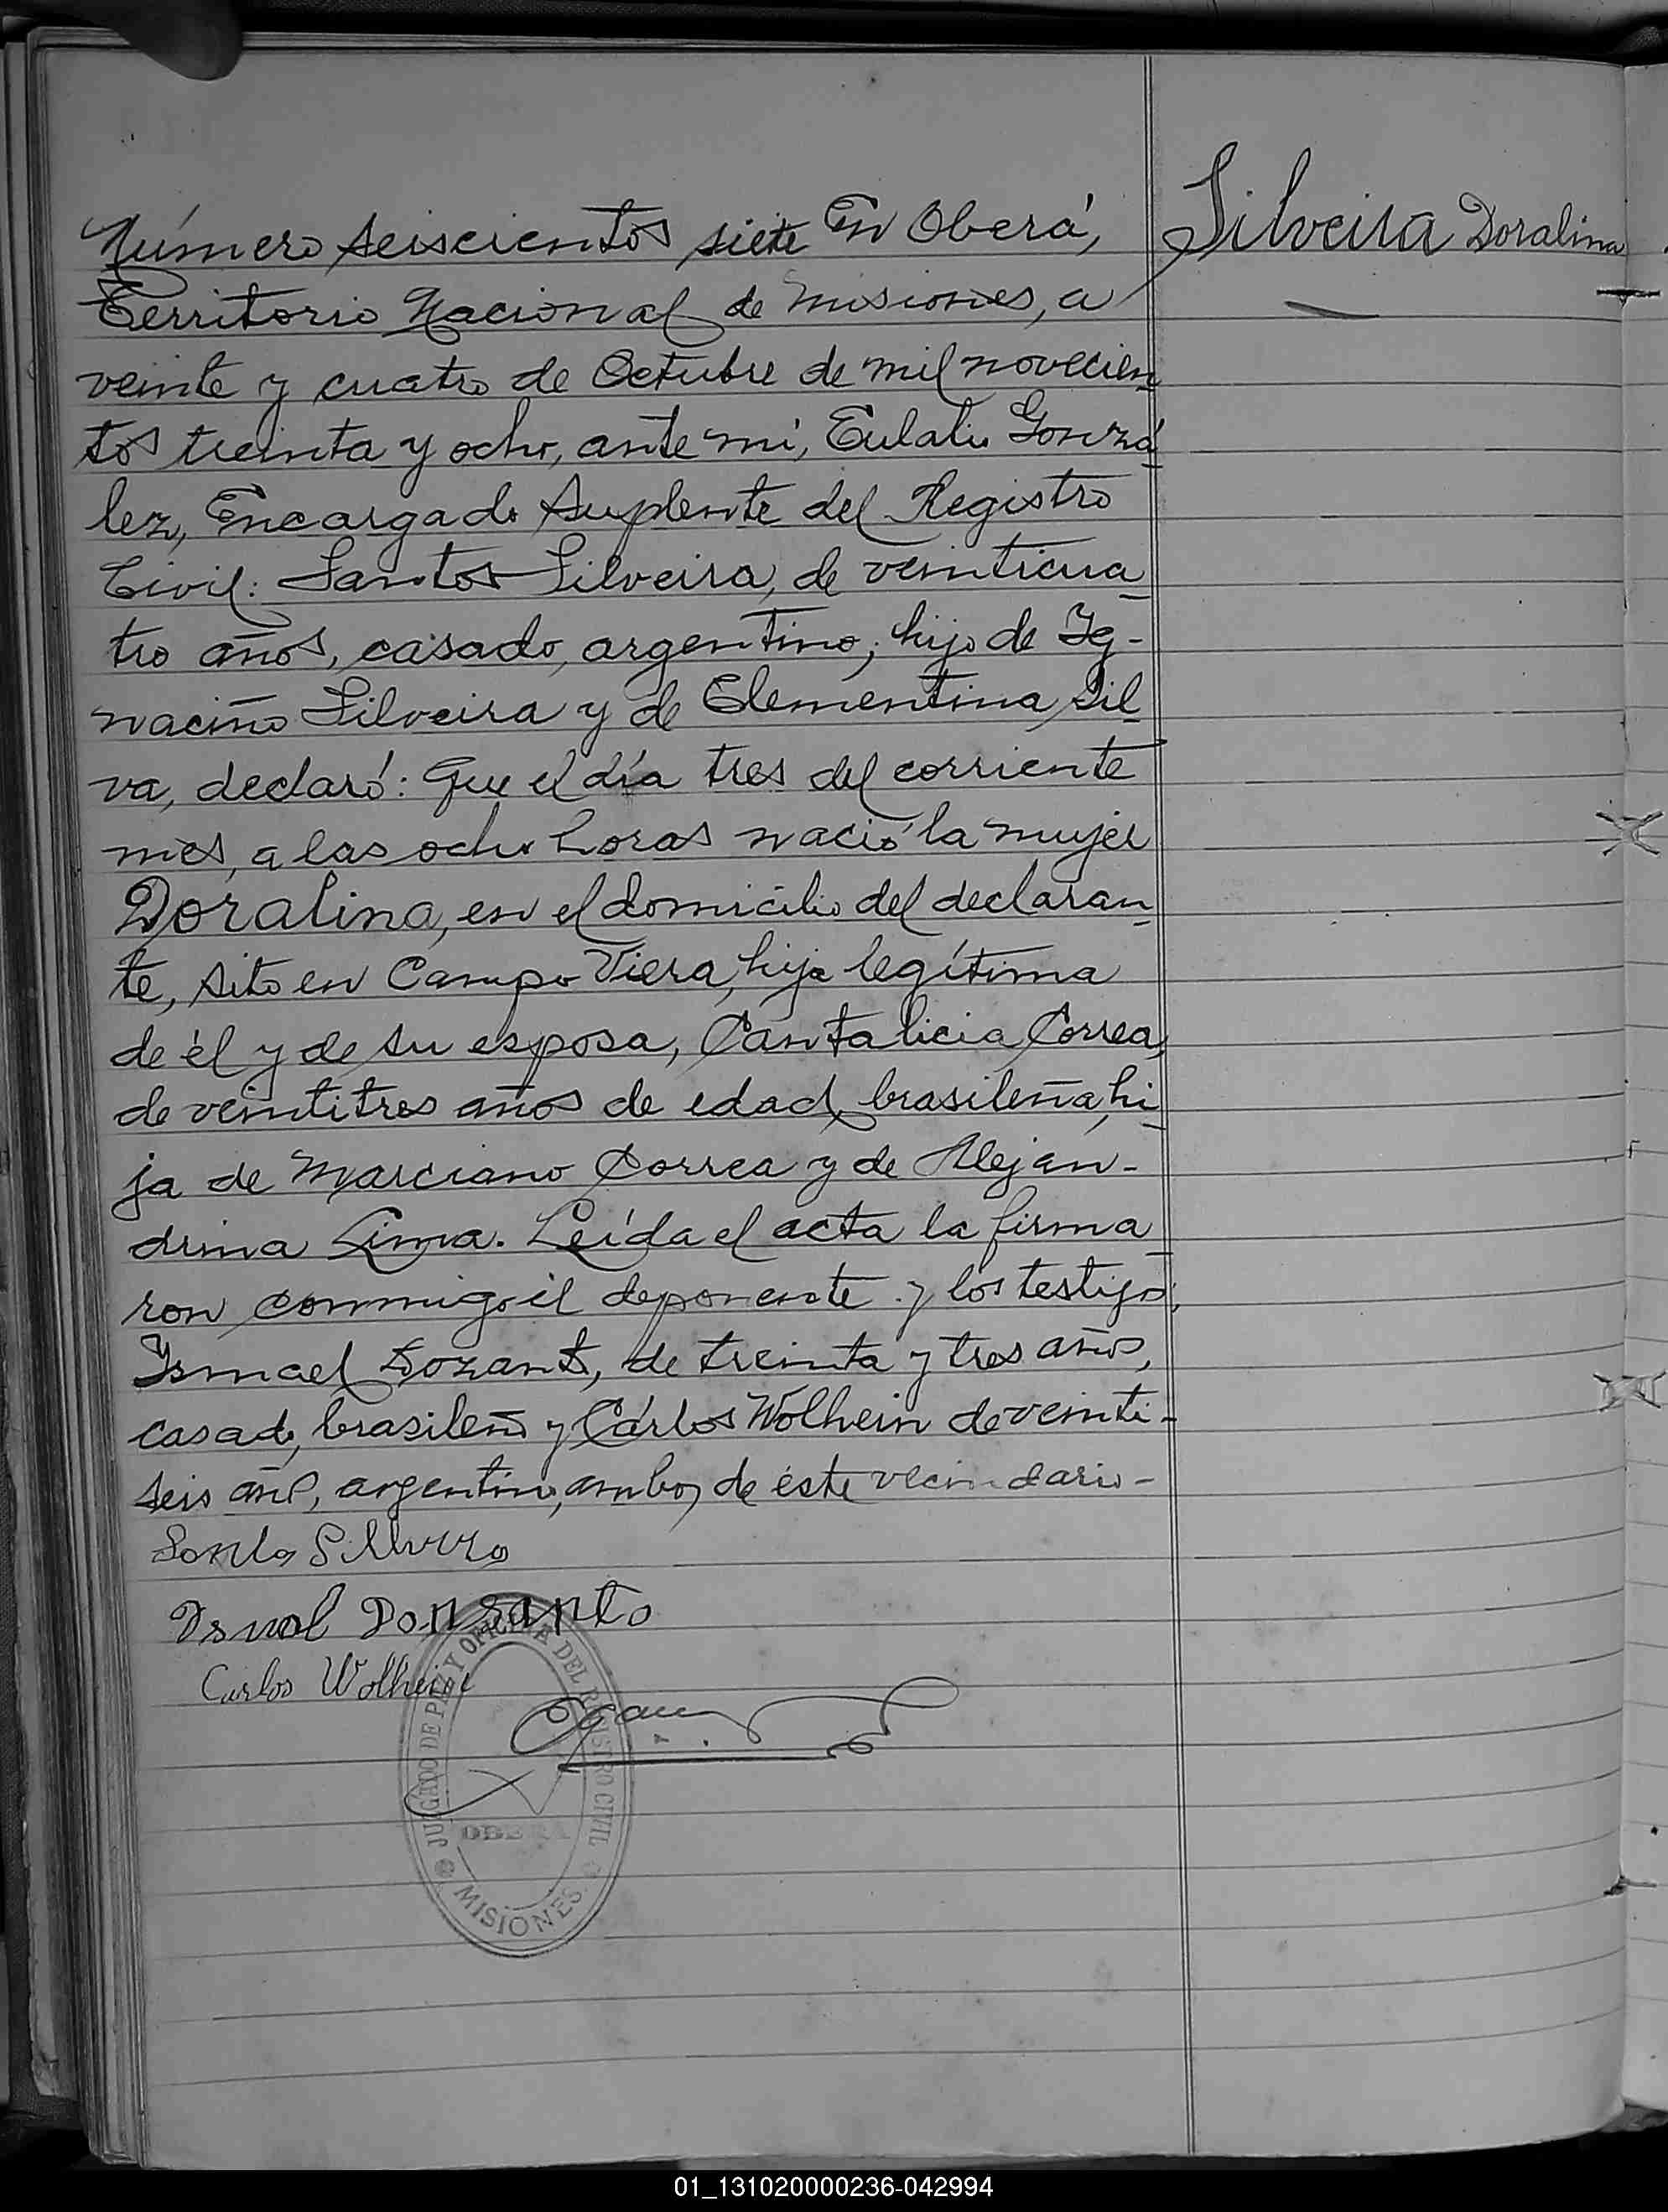 Número seiscientos siete En Oberá,
Silveira Doralina
Territorio Nacional de Misiones, a
veinte y cuatro de Octubre de mil novecien
tos treinta y ocho, ante mi, Eulalio Gonzá
lez, Encargado Suplente del Registro
Civil: Santos Silveira, de veinticua
tro años, casado, argentino; hijo de Ig-
naciño Silveira y de Clementina Sil
va, declaró: Que el día tres del corriente
mes, a las ocho horas nació la mujer
Doralina, en el domicilio del declaran
te, sito en Campo Viera, hija legítima
de él y de su esposa, Cantalicia Correa,
de veintitres años de edad, brasileña, hi
ja de Marciano Correa y de Alejan-
drina Lima. Leída el acta la firma
ron conmigo el deponente y los testigos,
Ismael, de treinta y tres años,
casado, brasileño y Cárlos Wolhein de veinti-
seis años, argentino, ambos de éste vecindario-
Carlos Wolhein
JUZGADO DE PAZ Y OFICINA DEL REGISTRO CIVIL
OBERA
MISIONES
01_131020000236-042994